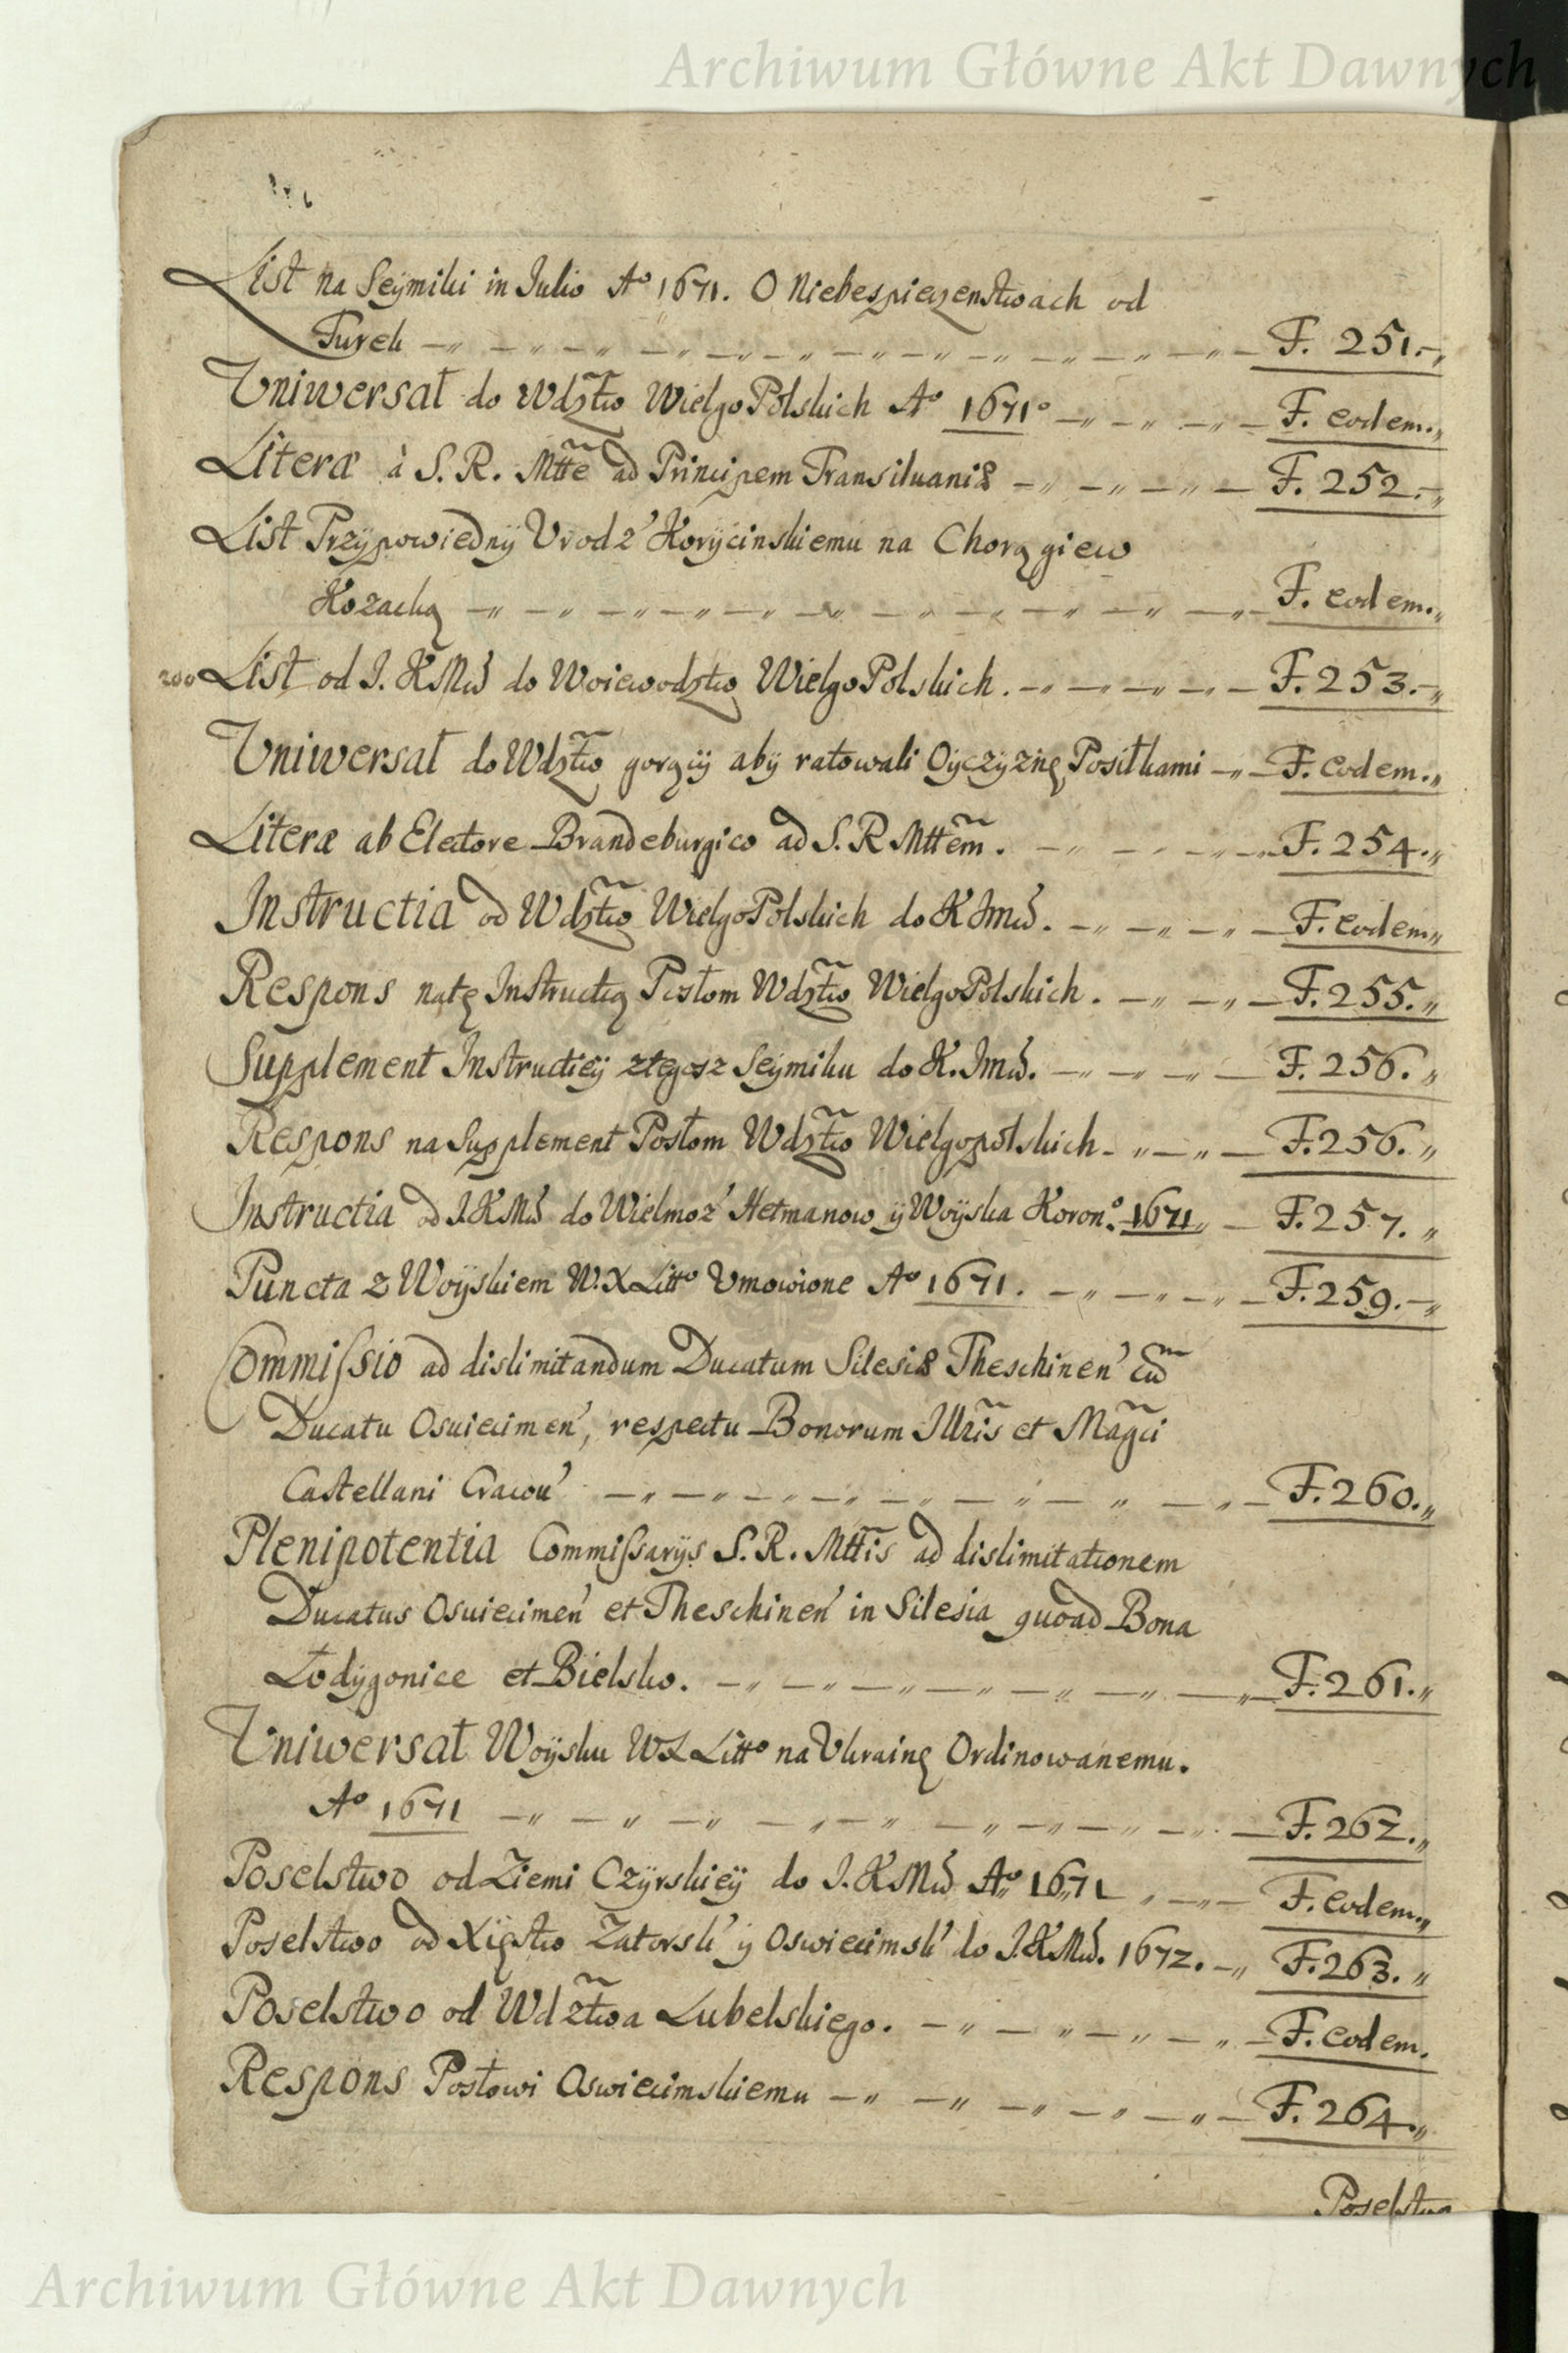 Archiwum Główne Akt Dawnych
List na Seÿmiki in Julio Aº 1671. O Niebespieczenstwach od
Turek F. 251.
Uniwersał do Wdztw̃ WielgoPolskich Aº 1671º F. eodem.
Literæ à S. R. Mtt̃e ad Principem Transiluaniæ F. 252.
List Przÿpowiednÿ Vrodz' Korÿcinskiemu na Chorągiew
Kozacką F. eodem.
200 List od J. KMći do Woiewodztw WielgoPolskich. F. 253.
Uniwersał do Wdztw̃ gorącÿ abÿ ratowali Oÿczÿznę Posiłkami F. eodem.
Literæ ab Electore Brandeburgico ad S. R Mttem̃. F. 254.
Instructia od Wdztw̃ WielgoPolskich do K Jmći. F. eodem
Respons natę Instructią Posłom Wdztw̃ WielgoPolskich. F. 255.
Supplement Instructieÿ ztegosz Seÿmiku do K. Jmći. F. 256.
Respons na Supplement Posłom Wdztw̃ Wielgopolskich F. 256.
Instructia od J. KMći do Wielmoz' Hetmanow ÿ Woÿska Koronº. 1671 F. 257.
Puncta z Woÿskiem W. X Littº Vmowione Aº 1671. F. 259.
Commiſsio ad dislimitandum Ducatum Silesiæ Theschinen' cũ
Ducatu Osuiecimen', respectu Bonorum Illr̃is et Mag̃ci
Castellani Cracou' F. 260.
Plenipotentia Commiſsarÿs S. R. Mtt̃is ad dislimitationem
Ducatus Osuiecimen' et Theschinen' in Silesia quoad Bona
Łodÿgonice et Bielsko. F. 261.
Uniwersał Woÿsku WX Littº na Vkrainę Ordinowanemu.
Aº 1671 F. 262.
Poselstwo od Ziemi Czÿrskieÿ do J. KMći Aº 1671 F. eodem.
Poselstwo od Xięstw Zatorsk' ÿ Oswiecimsk' do J. KMći. 1672. F. 263.
Poselstwo od Wdztw̃a Lubelskiego. F. eodem.
Respons Posłowi Oswiecimskiemu F. 264.
Poselstwo
Archiwum Główne Akt Dawnych